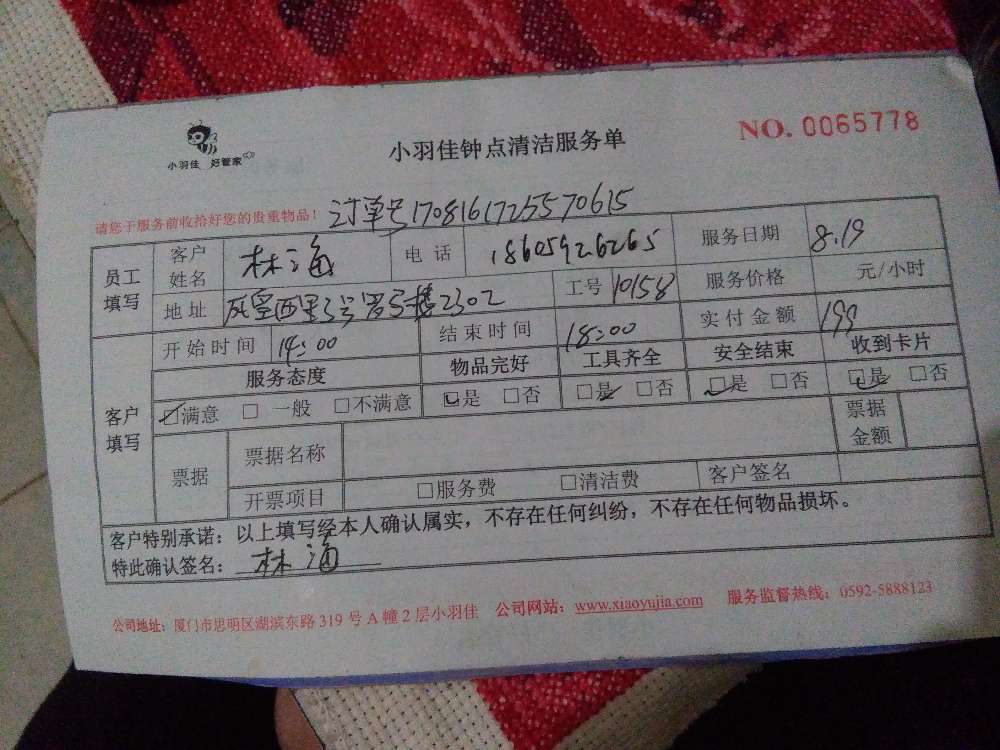 小羽佳 好管家
小羽佳钟点清洁服务单
NO. 0065778
请您于服务前收拾好您的贵重物品！ 订单号170816172557 0615
员工填写 客户姓名 林海 电话 18605926265 服务日期 8.19
地址 西里3号 楼2302 工号 10158 服务价格 元/小时
客户填写 开始时间 14:00 结束时间 18:00 实付金额 199
服务态度 物品完好 工具齐全 安全结束 收到卡片
☑满意 □ 一般 □不满意 ☑是 □否 ☑是 □否 ☑是 □否 ☑是 □否
票据 票据名称 票据金额
开票项目 □服务费 □清洁费 客户签名
客户特别承诺：以上填写经本人确认属实，不存在任何纠纷，不存在任何物品损坏。
特此确认签名： 林海
公司地址：厦门市思明区湖滨东路319号A幢2层小羽佳 公司网站：www.xiaoyujia.com 服务监督热线：0592-5888123